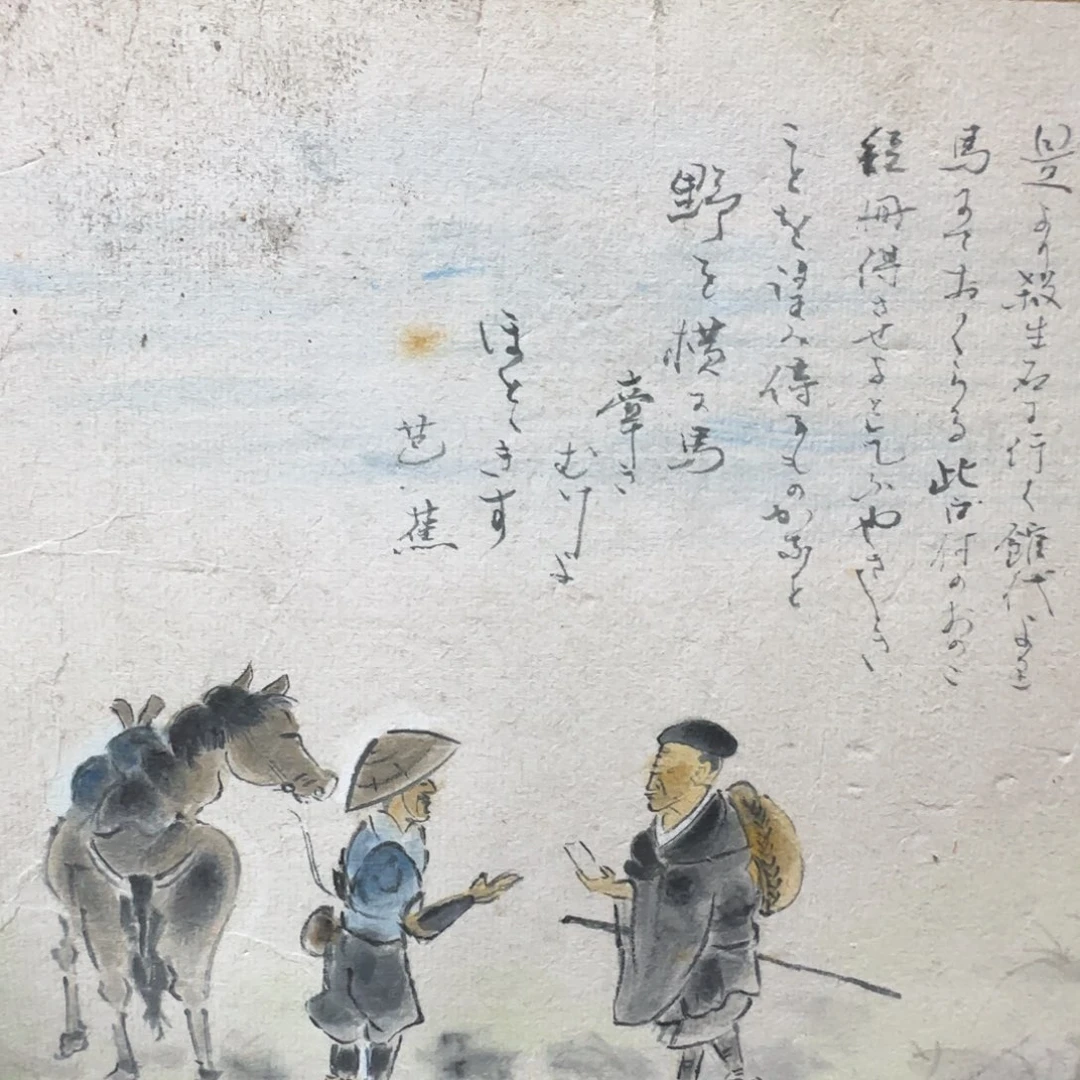 是より殺生石に行く館代より
馬にておくらる此口付のおのこ
短冊得させよと乞ふやさしき
ことを望み侍るものかなと
野を横に馬
牽き
むけよ
ほとゝきす
芭蕉